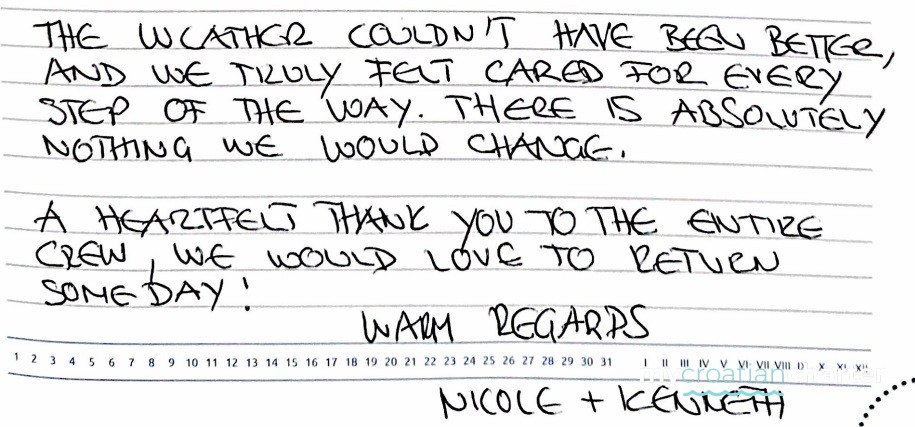 THE WEATHER COULDN'T HAVE BEEN BETTER,
AND WE TRULY FELT CARED FOR EVERY
STEP OF THE WAY. THERE IS ABSOLUTELY
NOTHING WE WOULD CHANGE.
A HEARTFELT THANK YOU TO THE ENTIRE
CREW, WE WOULD LOVE TO RETURN
SOMEDAY!
WARM REGARDS
1 2 3 4 5 6 7 8 9 10 11 12 13 14 15 16 17 18 19 20 21 22 23 24 25 26 27 28 29 30 31 I II III IV V VI VII VIII IX X XI XII
mycroatiancharter
NICOLE + KENNETH